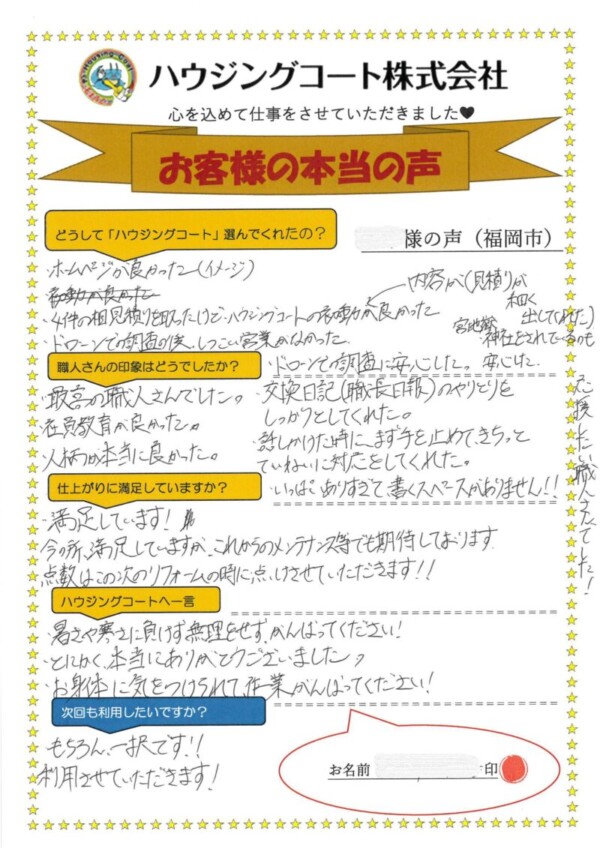 ハウジングコート株式会社
心を込めて仕事をさせていただきました♥
お客様の本当の声
様の声（福岡市）
どうして「ハウジングコート」選んでくれたの？
・ホームページが良かった（イメージ）
・4件の相見積りを取ったけど・ハウジングコートの衣動が良かった
内容が（見積りが
細く
出してくれた）
宮地嶽
神社をされているのも
安心した。
・ドローンでの調査の後、しつこい営業がなかった。
・ドローンでの調査に安心した。
職人さんの印象はどうでしたか？
・最高の職人さんでした。
・社員教育が良かった。
・人柄が本当に良かった。
・交換日記（職長日報）のやりとりを
しっかりとしてくれた。
・話しかけた時に、まず手を止めてきちっと
ていねいに対応をしてくれた。
・いっぱいありすぎて書くスペースがありません！！
応援したい職人さんでした！
仕上がりに満足していますか？
・満足しています！
今の所、満足していますが、これからのメンテナンス等でも期待しております
点数はこの次のリフォームの時に点けさせていただきます！！
ハウジングコートへ一言
・暑さや寒さに負けず無理をせず、がんばってください！
・とにかく、本当にありがとうございました
・お身体に気をつけられて、作業がんばってください！
次回も利用したいですか？
もちろん、一択です！！
利用させていただきます！
お名前
印